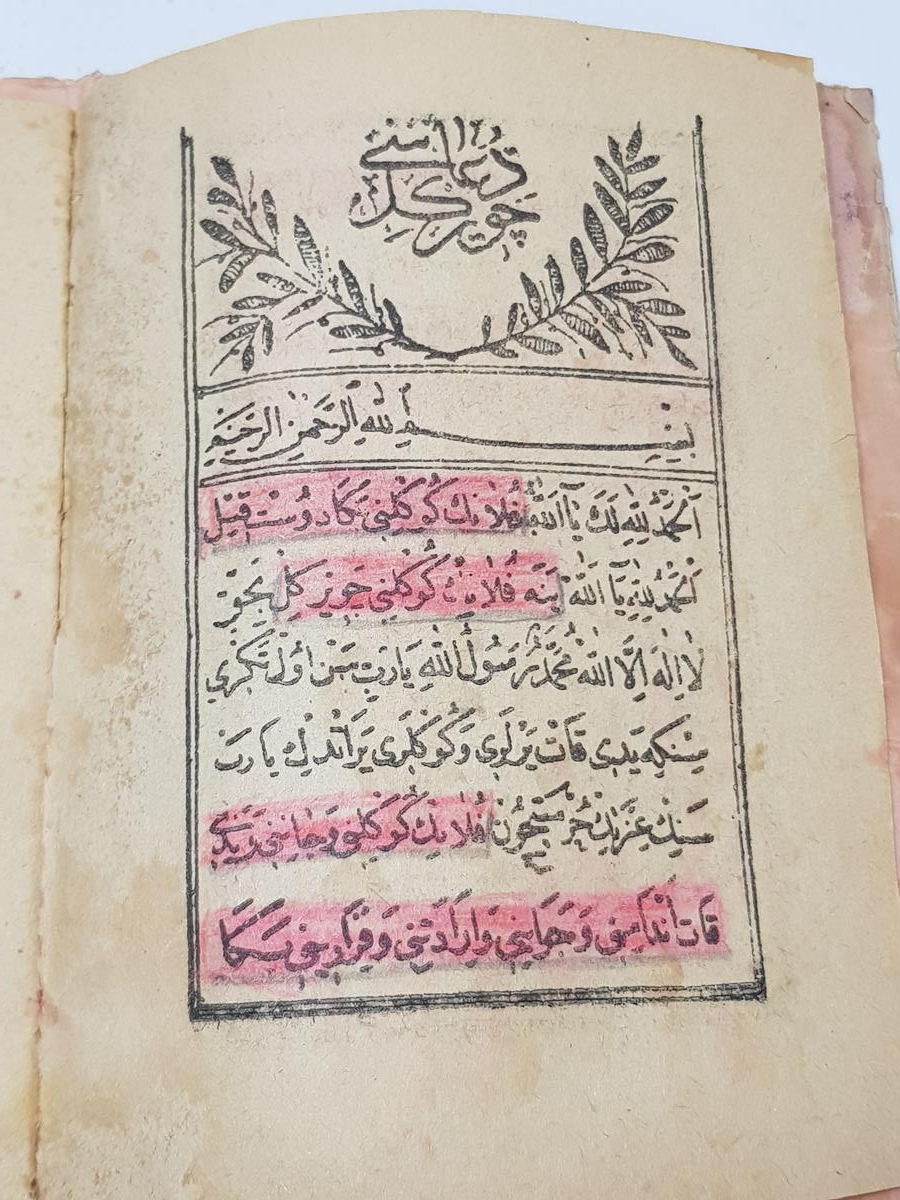 دعاسنی
چویر کل
بسم الله الرحمن الرحيم
الحمد لله لك يا الله فلاننك كوكلنی بكا دوست قیل
الحمد لله يا الله ینه فلاننك كوكلنی چویر كل بحق
لا اله الا الله محمد رسول الله يا رب سن اول تكری
سنكه یدی قات یرلری و كوكلری یراتدك يا رب
سنك عزیزلك حرمتیچون فلاننك كوكلنی و جاننی
قات انداسنی و جهاننی و ارادتنی و قرارینی بكا